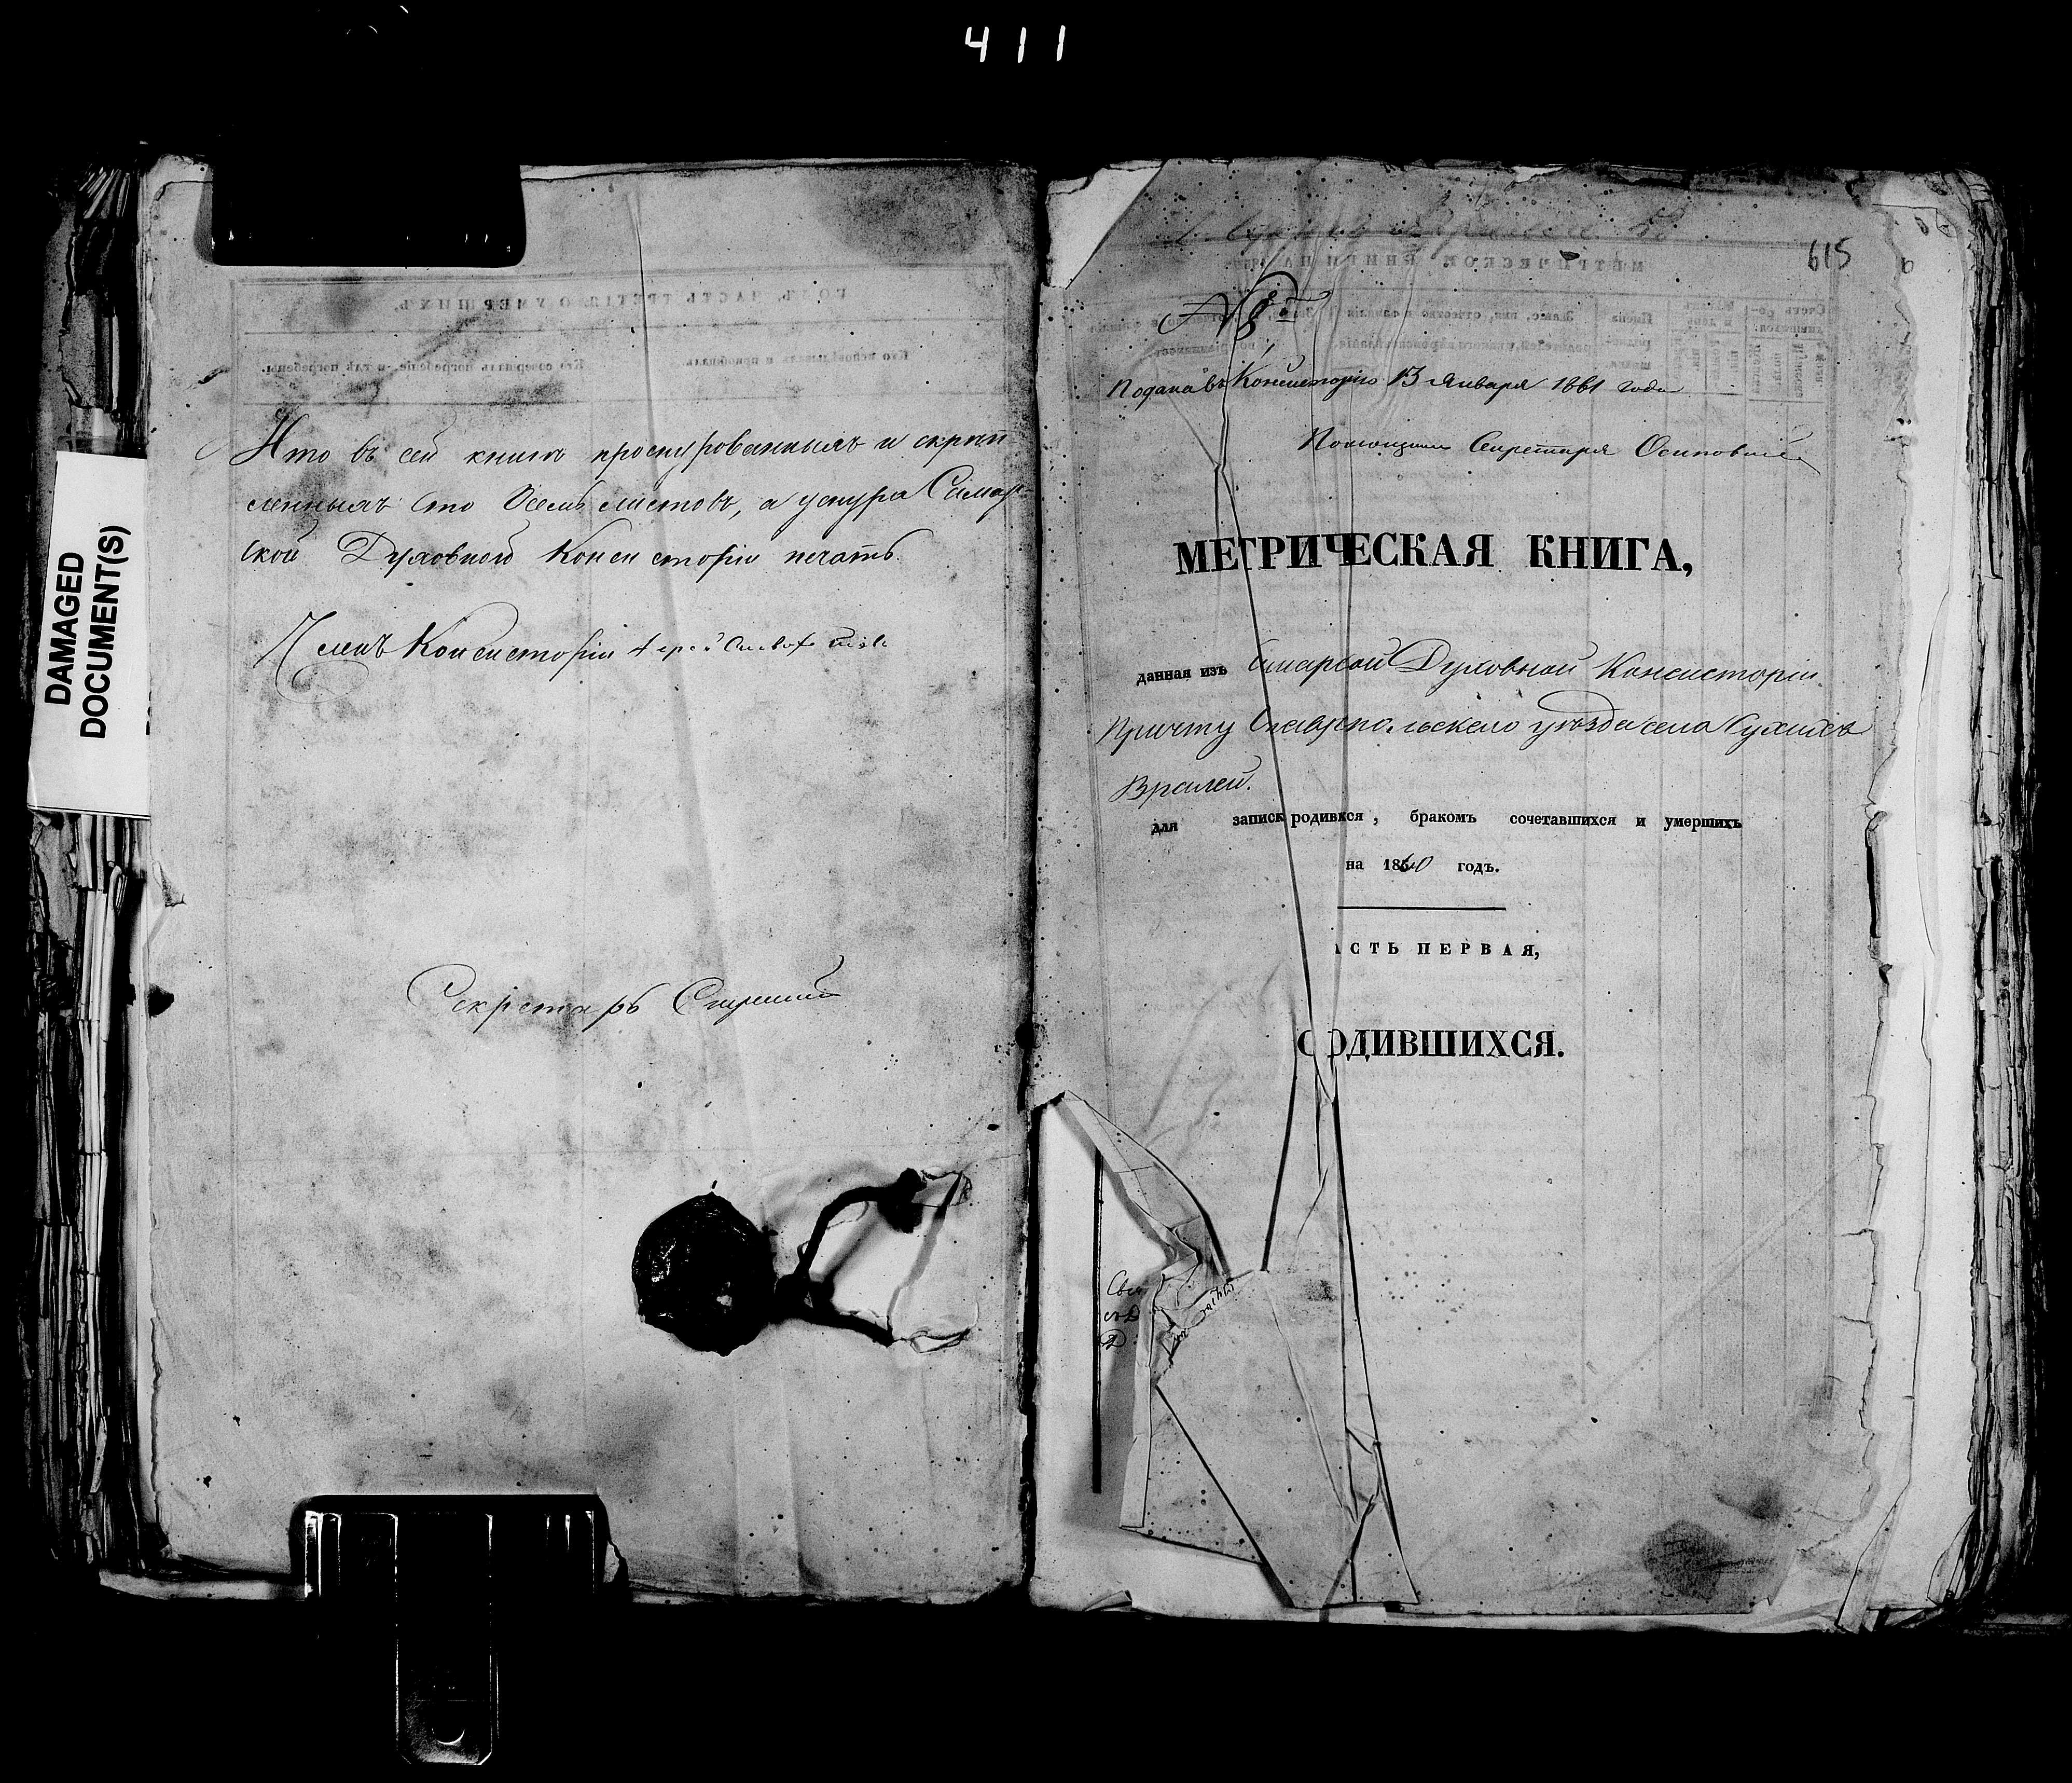 411
DAMAGED
DOCUMENT(S)
Что въ сей книгѣ прошнурованныхъ и скрѣп
ленныхъ сто восемь листовъ, а у шнура Самар
ской Духовной Консисторіи печать.
Членъ Консисторіи Іерей
Секретарь
615
№ 8
Подана въ Консисторію 13 Января 1861 года
Помощникъ Секретаря
МЕТРИЧЕСКАЯ КНИГА,
данная изъ Самарской Духовной Консисторіи
Причту Ставропольскаго уѣзда села Сухихъ
Врагей.
для записк родившся, бракомъ сочетавшихся и умершихъ
на 1860 годъ.
АСТЬ ПЕРВАЯ,
О ОДИВШИХСЯ.